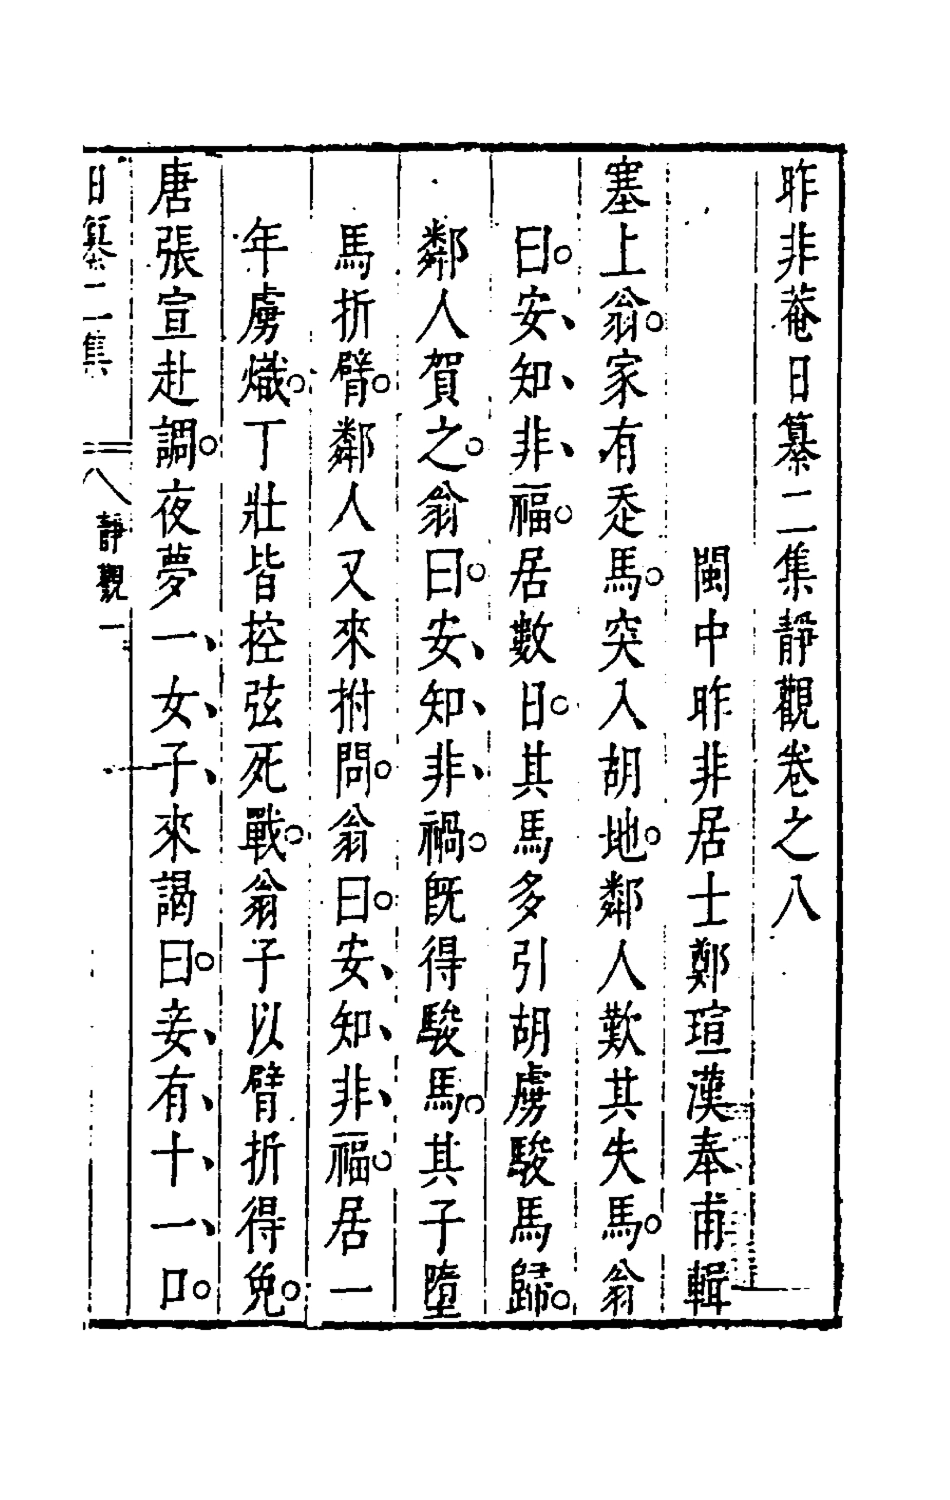 昨非菴日纂二集靜觀卷之八
閩中昨非居士鄭瑄漢奉甫輯
塞上翁。家有忝馬。突入胡地。鄰人歎其失馬。翁
曰。安、知、非、福。居數日。其馬多引胡虜駿馬歸。
鄰人賀之。翁曰。安、知、非、禍。旣得駿馬。其子墮
馬折臂。鄰人又來拊問。翁曰。安、知、非、福。居一
年虜熾。丁壯皆控弦死戰。翁子以臂折得免。
唐張宣赴調。夜夢一、女、子、來謁曰。妾、有、十、一、口。
日纂二集 八 靜觀 一